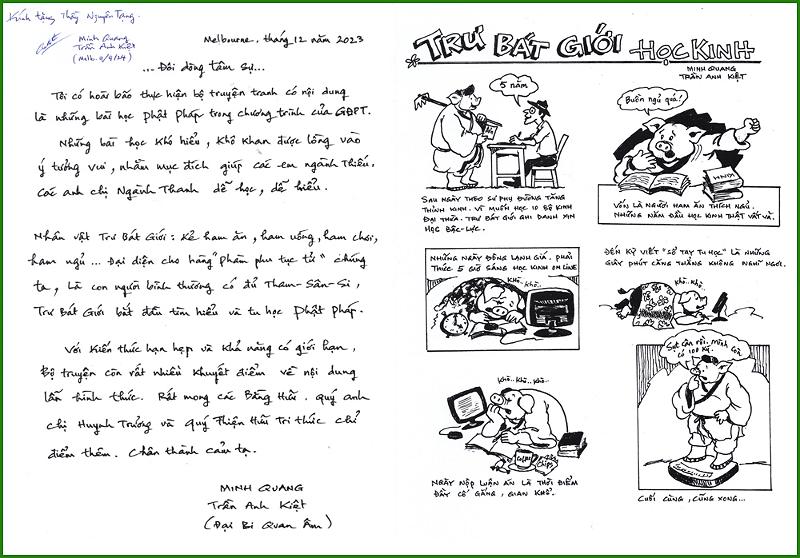 Kính tặng Thầy Nguyên Tạng.
Minh Quang
Trần Anh Kiệt
Melbourne, tháng 12 năm 2023
...Đôi dòng tâm sự...
Tôi có hoài bão thực hiện bộ truyện tranh có nội dung
là những bài học Phật Pháp trong chương trình của GĐPT.
Những bài học khó hiểu, khô khan được lồng vào
ý tưởng vui, nhằm mục đích giúp các em ngành Thiếu,
các anh chị Ngành Thanh dễ học, dễ hiểu.
Nhân vật Trư Bát Giới: Kẻ ham ăn, ham uống, ham chơi,
ham ngủ... Đại diện cho hàng "phàm phu tục tử" chúng
ta, là con người bình thường có đủ Tham-Sân-Si,
Trư Bát Giới bắt đầu tìm hiểu và tu học Phật Pháp.
Với kiến thức hạn hẹp và khả năng có giới hạn,
Bộ truyện còn rất nhiều khuyết điểm về nội dung
lẫn hình thức. Rất mong các Bằng Hữu, quý anh
chị Huynh Trưởng và quý Thiện Hữu Tri thức chỉ
điểm thêm. Chân thành cảm tạ.
MINH QUANG
Trần Anh Kiệt
(Đại Bi Quan Âm)
TRƯ BÁT GIỚI HỌC KINH
MINH QUANG
TRẦN ANH KIỆT
5 năm
SAU NGÀY THEO SƯ PHỤ ĐƯỜNG TĂNG
THỈNH KINH. VÌ MUỐN HỌC 10 BỘ KINH
ĐẠI THỪA. TRƯ BÁT GIỚI GHI DANH XIN
HỌC BẬC-LỰC.
Buồn ngủ quá!
KINH
VỐN LÀ NGƯỜI HAM ĂN THÍCH NGỦ.
NHỮNG NĂM ĐẦU HỌC KINH THẬT VẤT VẢ.
NHỮNG NGÀY ĐÔNG LẠNH GIÁ. PHẢI
THỨC 5 GIỜ SÁNG HỌC KINH ON LINE
Khò..Khò..
ĐẾN KỲ VIẾT "SỔ TAY TU HỌC" LÀ NHỮNG
GIÂY PHÚT CĂNG THẲNG KHÔNG NGHỈ NGƠI.
Khò..Khò..
Khò..Khò..Khò..
Coffee
Chips
NGÀY NỘP LUẬN ÁN LÀ THỜI ĐIỂM
ĐẦY CỐ GẮNG, GIAN KHỔ.
Sụt cân rồi. Mình còn
có 100 Ký.
CUỐI CÙNG, CŨNG XONG...